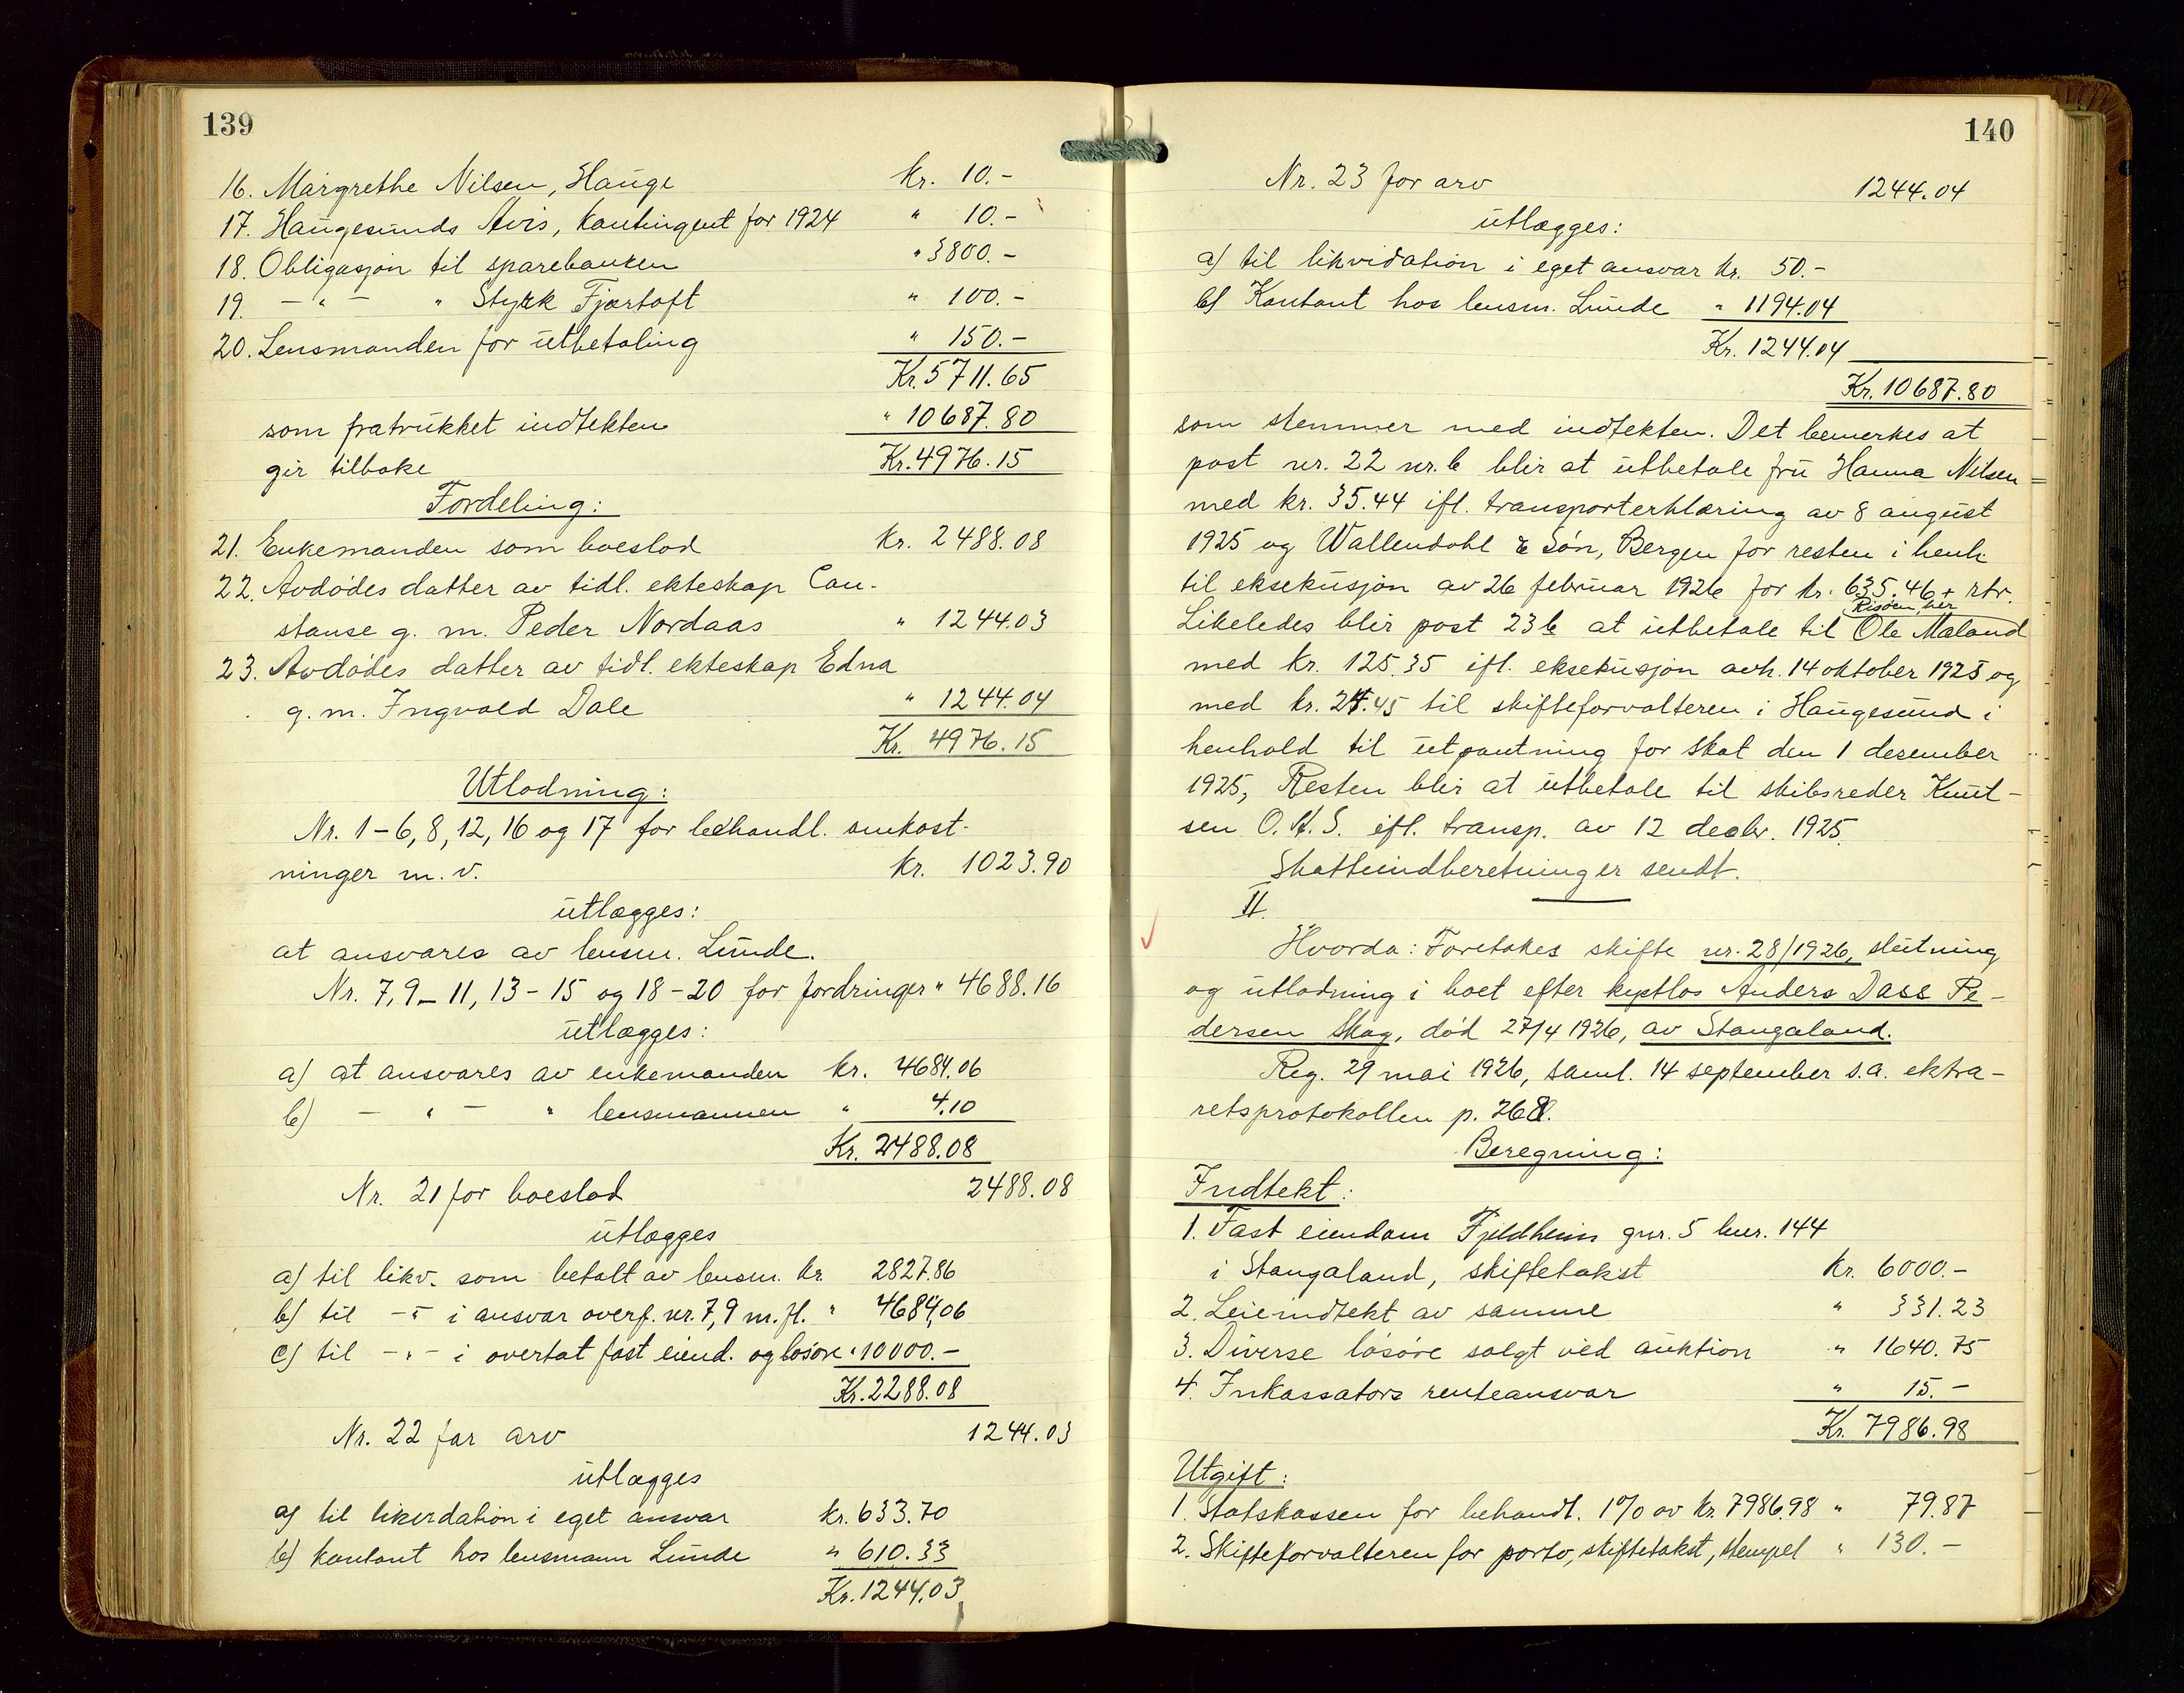 139
16. Margrethe Nilsen, Hauge kr. 10.-
17. Haugesunds Avis, kontingent for 1924 " 10.-
18. Obligasjon til sparebanken " 3800.-
19. - " - " Styrk Fjærtoft " 100.-
20. Lensmanden for utbetaling " 150.-
Kr. 5711.65
som fratrukket indtekten " 10687.80
gir tilbake Kr. 4976.15
Fordeling:
21. Enkemanden som boeslod kr. 2488.08
22. Avdødes datter av tidl. ekteskap Con-
stanse g. m. Peder Nordaas " 1244.03
23. Avdødes datter av tidl. ekteskap Edna
g. m. Ingvald Dale " 1244.04
Kr. 4976.15
Utlodning:
Nr. 1-6, 8, 12, 16 og 17 for behandl. omkost-
ninger m. v. kr. 1023.90
utlægges:
at ansvares av lensm. Lunde.
Nr. 7, 9-11, 13-15 og 18-20 for fordringer " 4688.16
utlægges:
a) at ansvares av enkemanden kr. 4684.06
b) - " - " lensmannen " 4.10
Kr. 2488.08
Nr. 21 for boeslod 2488.08
utlægges
a) til likv. som betalt av lensm. kr. 2827.86
b) til - " - i ansvar overf. nr. 7, 9 m. fl. " 4684,06
c) til - " - i overtat fast eiend. og løsøre " 10000.-
Kr. 2288.08
Nr. 22 for arv 1244.03
utlægges
a) til likvidation i eget ansvar kr. 633.70
b) kontant hos lensmann Lunde " 610.33
Kr. 1244.03
140
Nr. 23 for arv 1244.04
utlægges:
a) til likvidation i eget ansvar kr. 50.-
b) Kontant hos lensm. Lunde " 1194.04
Kr. 1244.04
Kr. 10687.80
som stemmer med indtekten. Det bemerkes at
post nr. 22 nr. b blir at utbetale fru Hanna Nilsen
med kr. 35.44 ifl. transporterklæring av 8 august
1925 og Wallendahl & Søn, Bergen for resten i henh.
til eksekusjon av 26 februar 1926 for kr. 635.46 + rtr.
Risøen, her
Likeledes blir post 23 b at utbetale til Ole Mæland
med kr. 125.35 ifl. eksekusjon avh. 14 oktober 1925 og
med kr. 24.45 til skifteforvalteren i Haugesund i
henhold til utpantning for skat den 1 desember
1925, Resten blir at utbetale til skibsreder Knut-
sen O. A. S. ifl. transp. av 12 decbr. 1925.
Skatteindberetninger sendt.
II.
Hvorda: Foretokes skifte nr. 28/1926, slutning
og utlodning i boet efter kystlos Anders Dass Pe-
dersen Skog, død 27/4 1926, av Stangaland.
Reg. 29 mai 1926, saml. 14 september s.a. ekstra-
retsprotokollen p. 268.
Beregning:
Indtekt:
1. Fast eiendom Fjeldheim gnr. 5 bnr. 144
i Stangaland, skiftetakst kr. 6000.-
2. Leieindtekt av samme " 331.23
3. Diverse løsøre solgt ved auktion " 1640.75
4. Inkassators renteansvar " 15.-
Kr. 7986.98
Utgift:
1. Statskassen for behandl. 1% av kr. 7986.98 " 79.87
2. Skifteforvalteren for porto, skiftetakst, stempel " 130.-